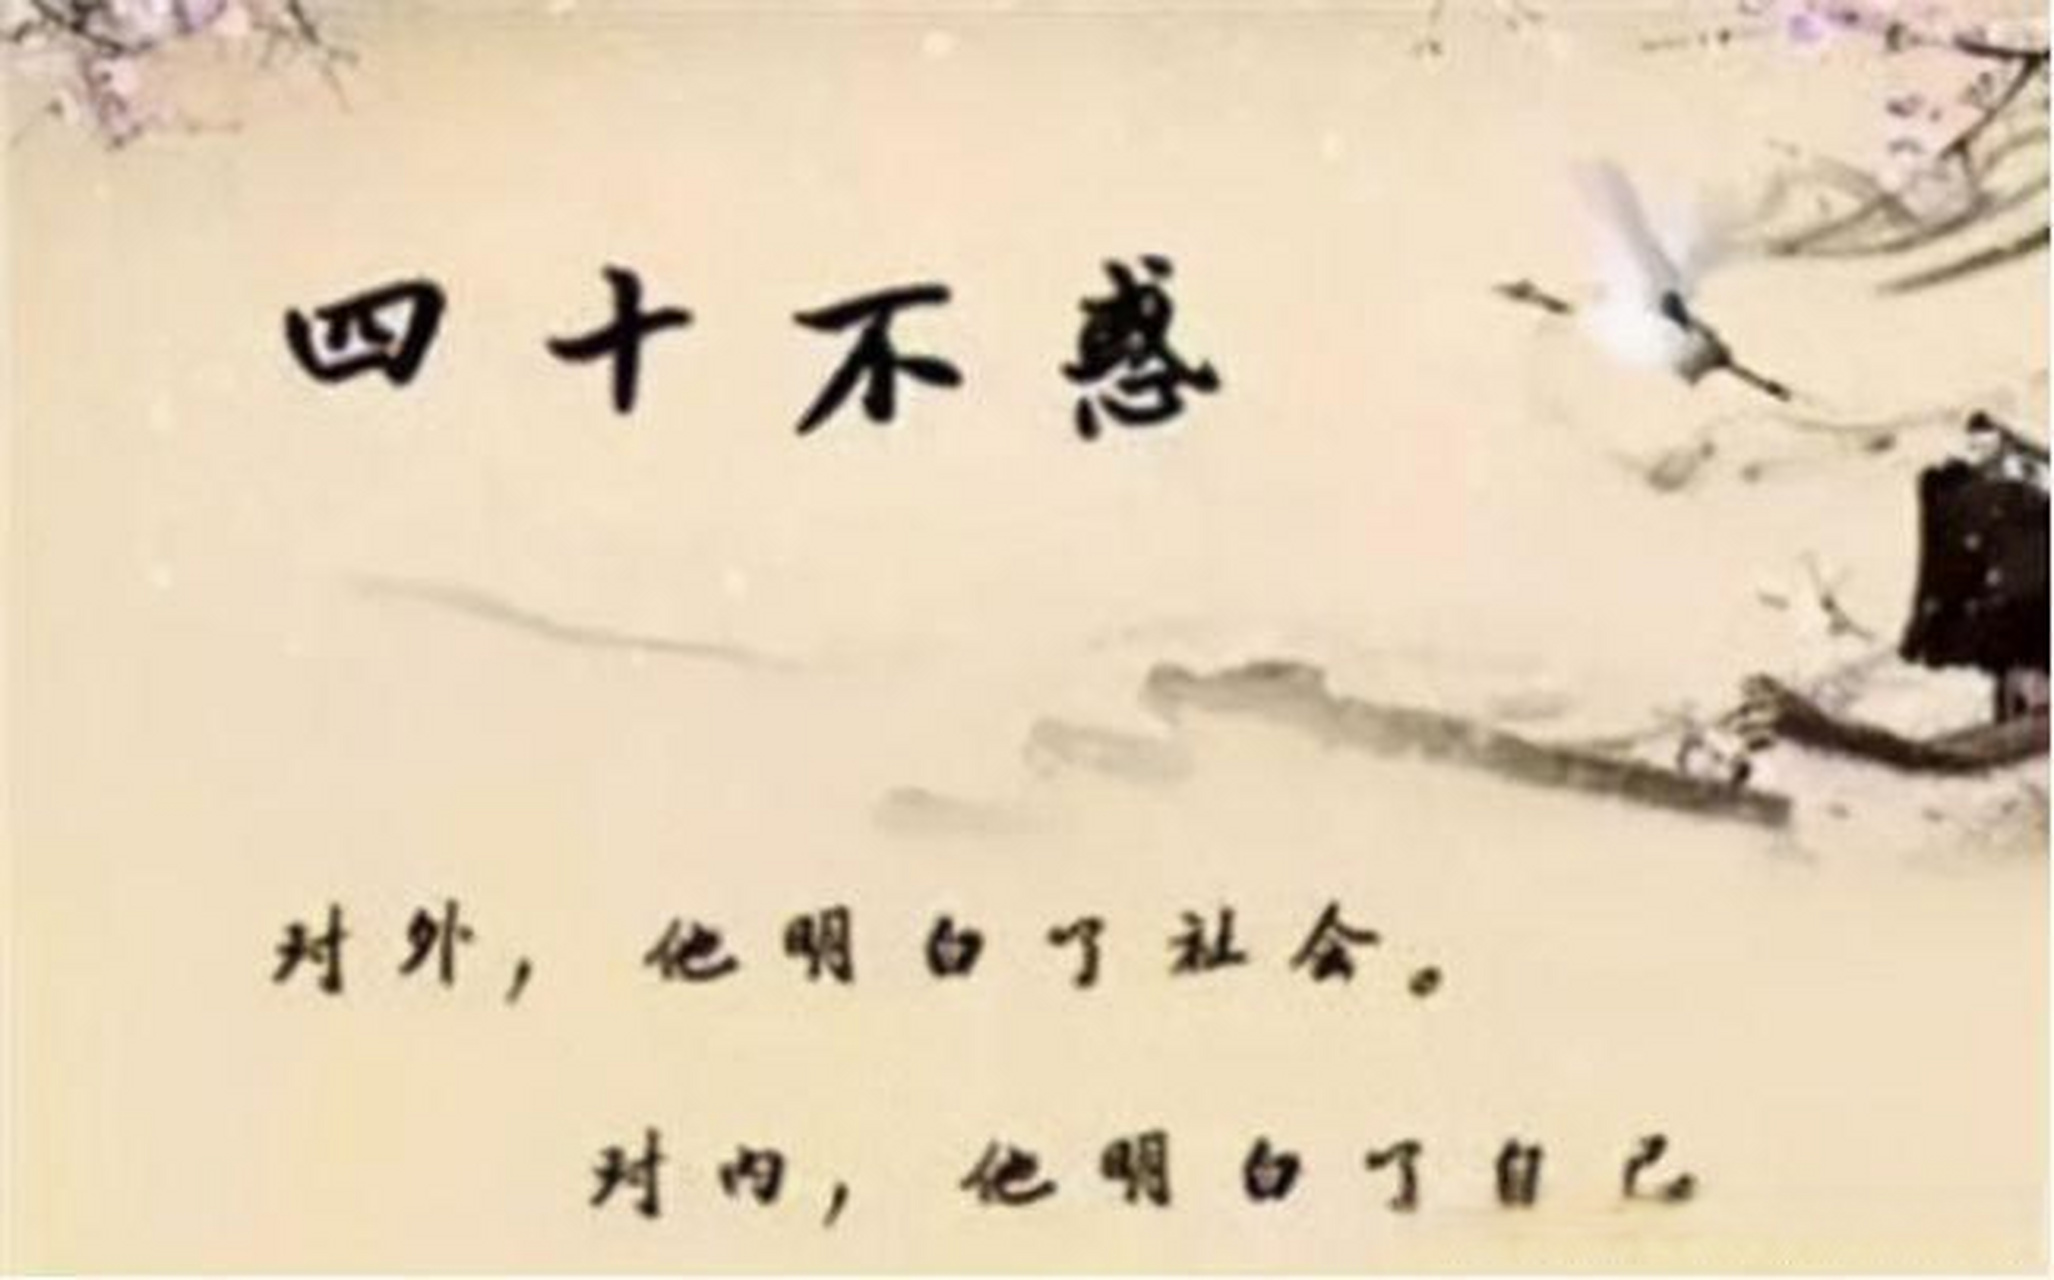 四十不惑
对外，他明白了社会。
对内，他明白了自己